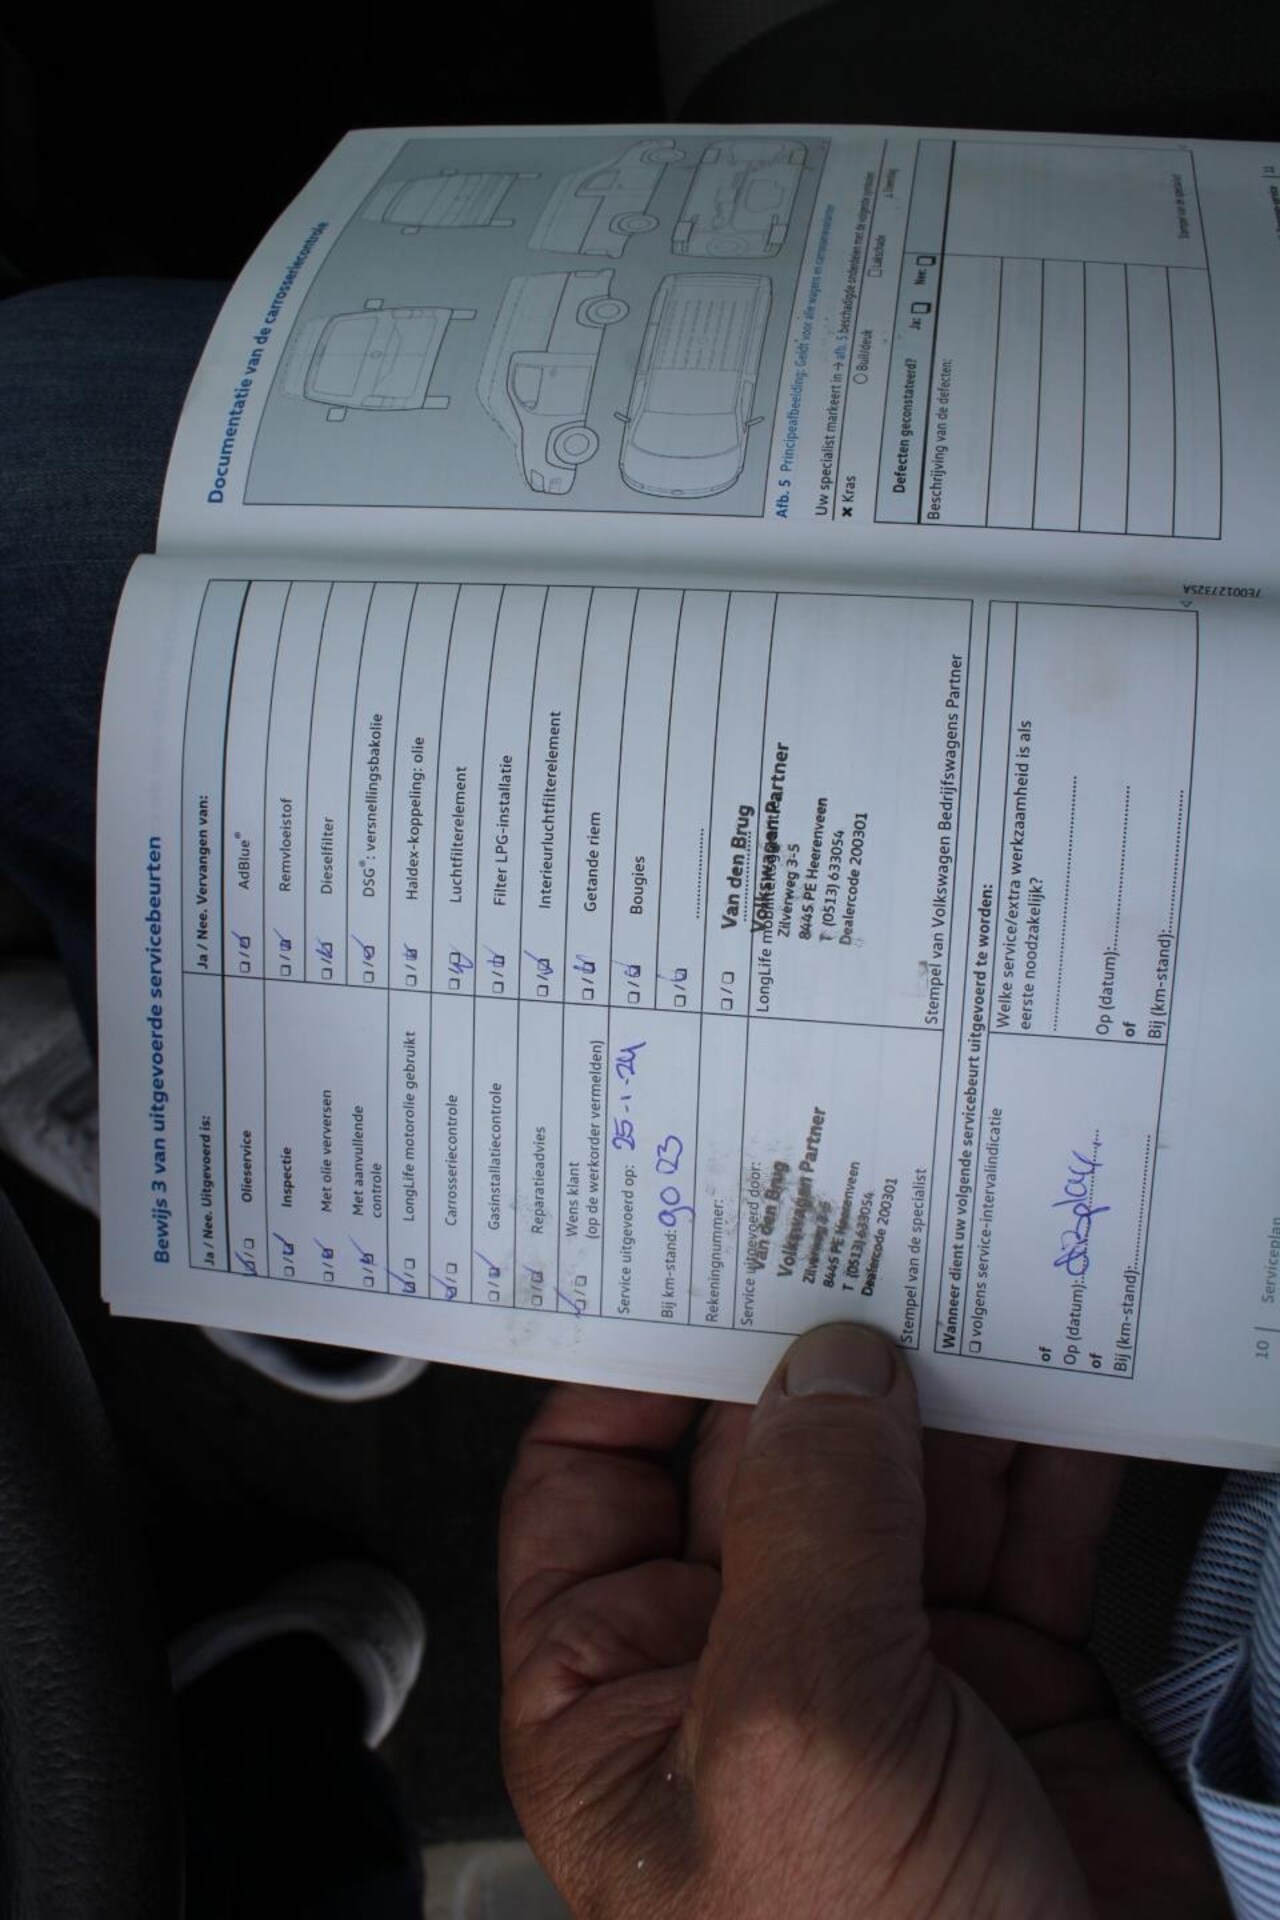 Bewijs 3 van uitgevoerde servicebeurten
Ja / Nee. Uitgevoerd is:
Olieservice
Inspectie
Met olie verversen
Met aanvullende
controle
LongLife motorolie gebruikt
Carrosseriecontrole
Gasinstallatiecontrole
Reparatieadvies
Wens klant
(op de werkorder vermelden)
Service uitgevoerd op: 25-1-24
Bij km-stand: 90 023
Rekeningnummer:
Service uitgevoerd door:
Van den Brug
Volkswagen Partner
Zilverweg 3-5
8445 PE Heerenveen
T (0513) 633054
Dealercode 200301
Stempel van de specialist
Ja / Nee. Vervangen van:
AdBlue®
Remvloeistof
Dieselfilter
DSG®: versnellingsbakolie
Haldex-koppeling: olie
Luchtfilterelement
Filter LPG-installatie
Interieurluchtfilterelement
Getande riem
Bougies
Van den Brug
Volkswagen Partner
LongLife
Zilverweg 3-5
8445 PE Heerenveen
T (0513) 633054
Dealercode 200301
Stempel van Volkswagen Bedrijfswagens Partner
Wanneer dient uw volgende servicebeurt uitgevoerd te worden:
volgens service-intervalindicatie
of
Op (datum): display
of
Bij (km-stand):
Welke service/extra werkzaamheid is als
eerste noodzakelijk?
Op (datum):
of
Bij (km-stand):
10 | Serviceplan
Documentatie van de carrosseriecontrole
Afb. 5 Principeafbeelding: Geldt voor alle wagens en carrosserievarianten
Uw specialist markeert in → afb. 5 beschadigde onderdelen met de volgende symbolen
✖ Kras
Buil/deuk
Lakschade
Steenslag
Defecten geconstateerd? Ja: Nee:
Beschrijving van de defecten:
Stempel van de specialist
7E0012732SA
11